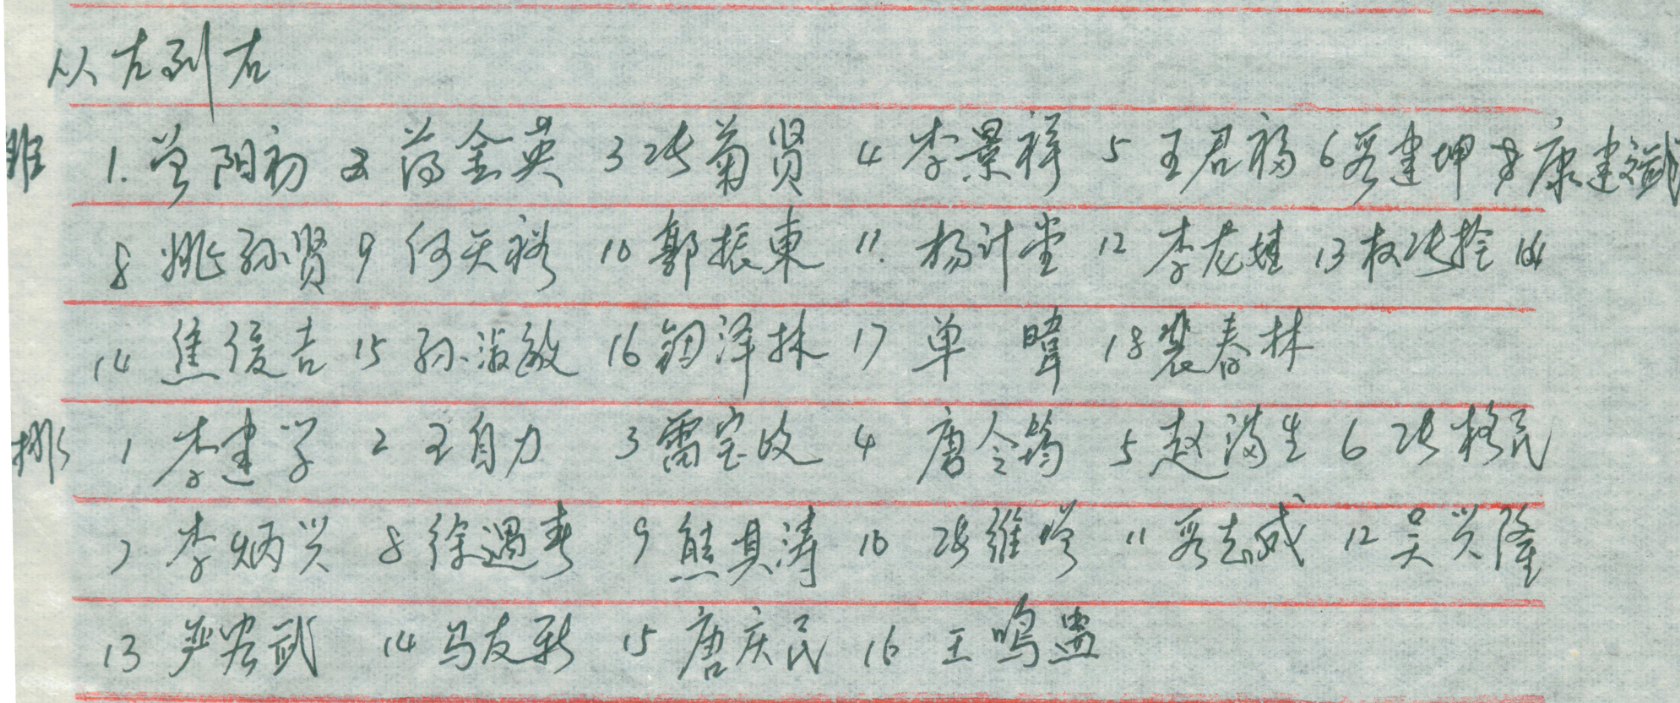 从左到右
排 1.曾阳初 2 蒋金英 3 张菊贤 4 李景祥 5 王君福 6 建坤 7 康建
8 姚孙贤 9 何天裕 10 郭振東 11. 杨计堂 12 李龙娃 13 权张拴
14 焦俊吉 15 孙淑敏 16 泽林 17 单 暐 18 裴春林
排 1 李建学 2 王自力 3 雷宝 4 唐令 5 赵满生 6 张格民
7 李炳兴 8 徐遇春 9 熊具涛 10 张维 11 志威 12 吴兴隆
13 严宏武 14 马友新 15 唐庆民 16 王鸣